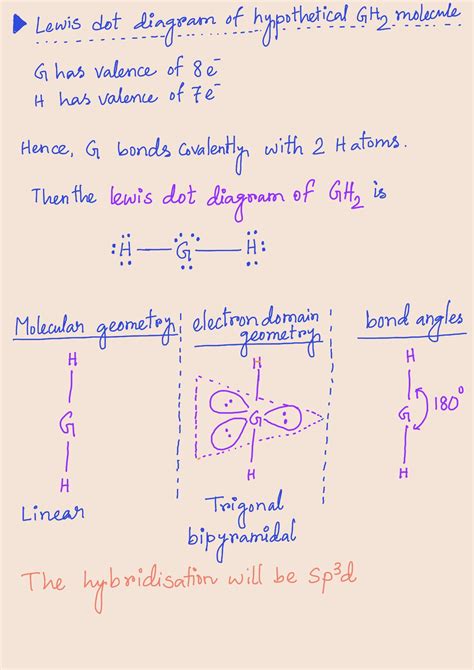 ▶ Lewis dot diagram of hypothetical GH₂ molecule
G has valence of 8e⁻
H has valence of 7e⁻
Hence, G bonds covalently with 2 H atoms.
Then the lewis dot diagram of GH₂ is
H — G — H
Molecular geometry
H
G
H
Linear
electron domain
geometry
H
G
H
Trigonal
bipyramidal
bond angles
H
G 180°
H
The hybridisation will be sp³d